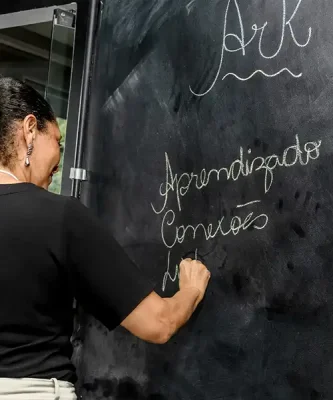 Ark
Aprendizado
Conexões